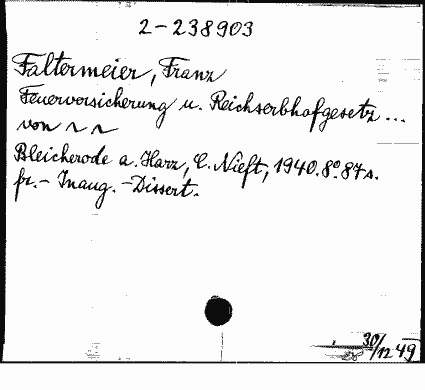 2-238903
Faltermeier, Franz
Feuerversicherung u. Reichserbhofgesetz ...
von ~ ~
Bleicherode a. Harz, C. Nieft, 1940. 8° 87 s.
fr. - Inaug. - Dissert.
30/12 49